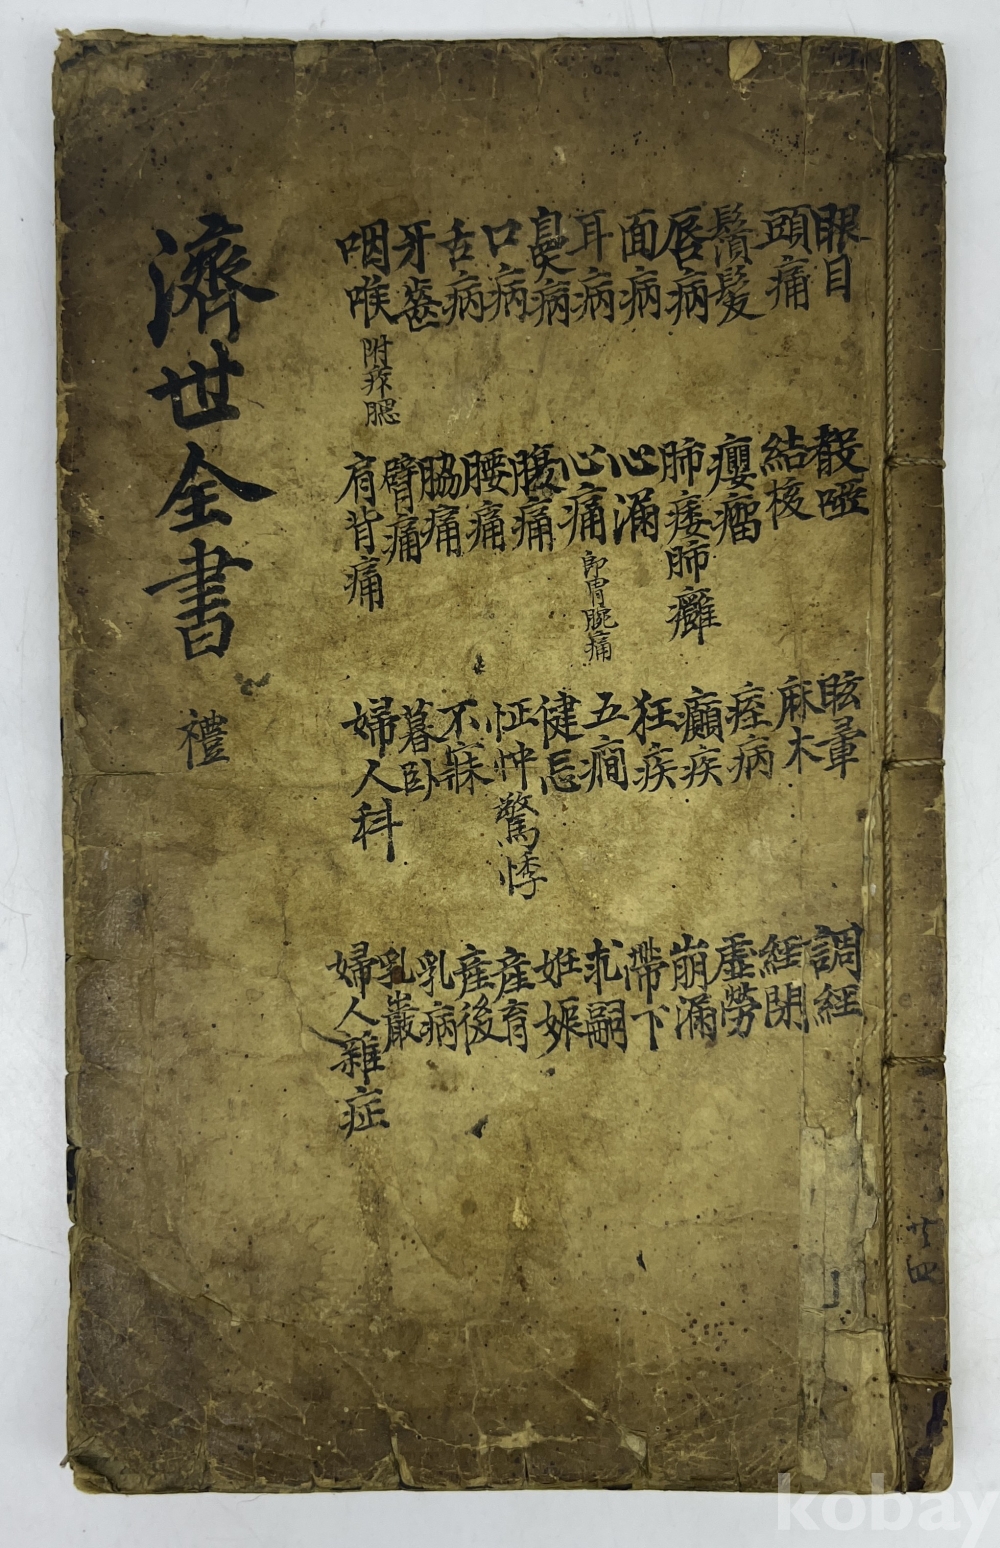 眼目
頭痛
鬚髮
唇病
面病
耳病
鼻病
口病
舌病
牙齒
咽喉 附痄腮
結核
癭瘤
肺痿肺癰
心滿
心痛 即胃脘痛
腹痛
腰痛
脇痛
臂痛
肩背痛
眩暈
麻木
痓病
癲疾
狂疾
五癎
健忘
怔忡驚悸
不寐
暮臥
婦人科
調經
經閉
虛勞
崩漏
帶下
求嗣
姙娠
産育
産後
乳病
乳巖
婦人雜症
濟世全書 禮
廿四
kobay